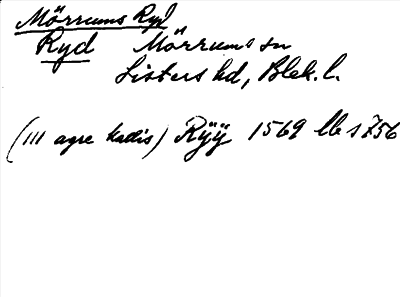 Mörrums Ryd
Ryd Mörrums sn
Listers hd, Blek. l.
(III agre Kadis) Rÿÿ 1569 lb s 756